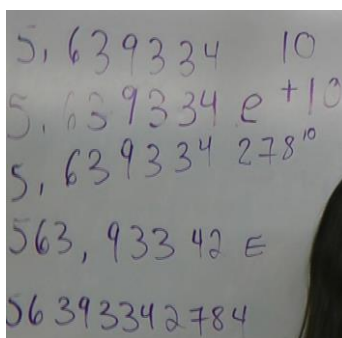 5,639334 10
5,639334 e+10
5,639334 278¹⁰
563,93342 E
56393342784